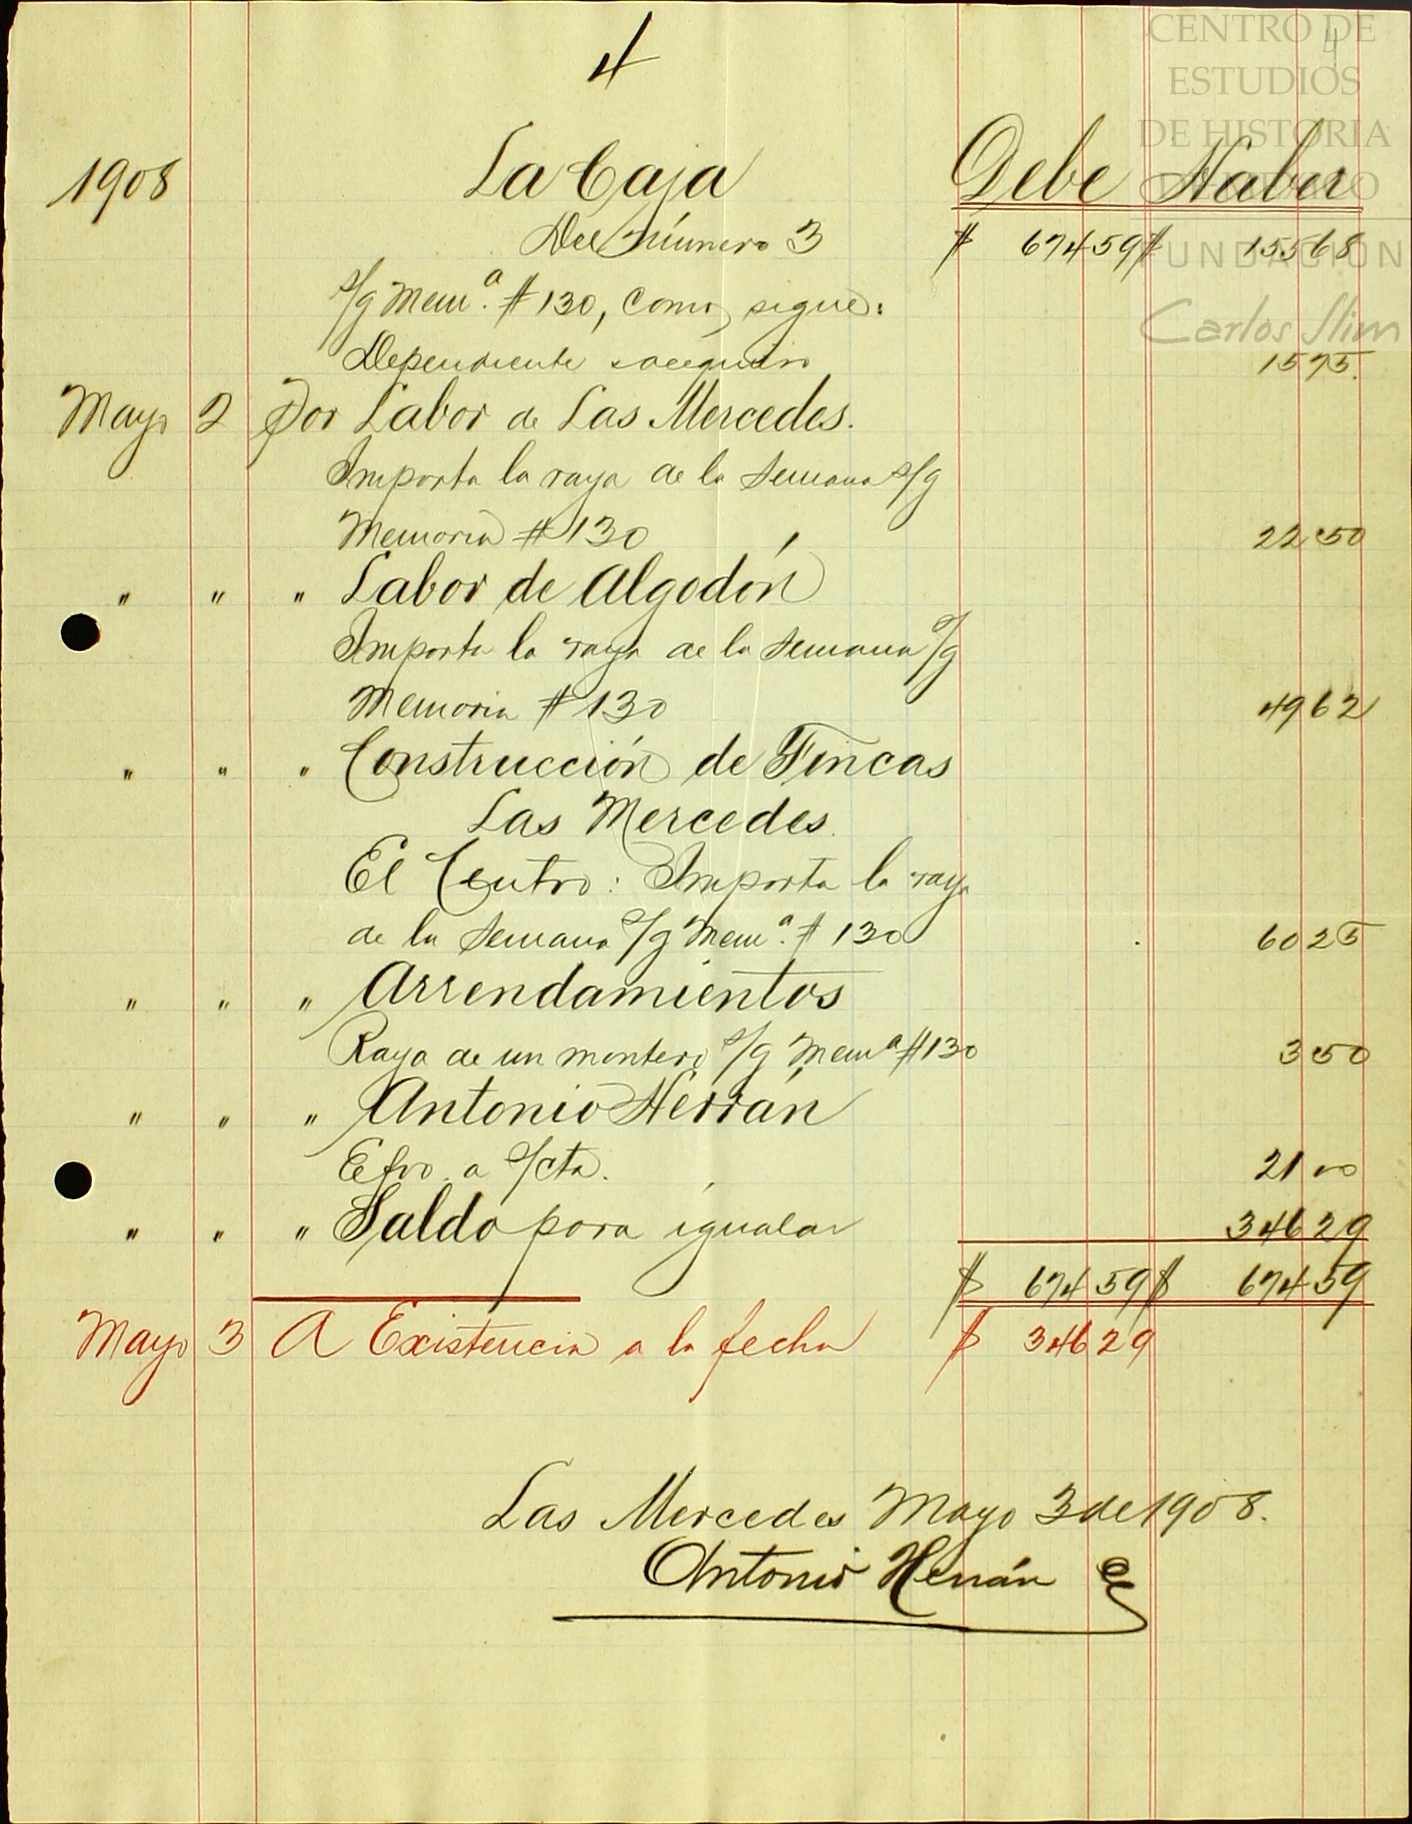 4
4
CENTRO DE
ESTUDIOS
DE HISTORIA
FUNDACIÓN
Carlos Slim
1908 La Caja Debe Haber
Del número 3 $ 674 59 $ 155 68
s/g Memª. #130, como sigue:
Dependiente 15 75.
Mayo 2 Por Labor de Las Mercedes.
Importa la raya de la Semana s/g
Memoria #130 22 50
" " " Labor de Algodón
Importa la raya de la Semana s/g
Memoria #130 49 62
" " " Construcción de Fincas
Las Mercedes.
El Centro: Importa la raya
de la Semana s/g Memª. # 130 60 25
" " " Arrendamientos
Raya de un montero s/g Memª #130 3 50
" " " Antonio Herrán
Efvo. a s/cta. 21 00
" " " Saldo para igualar 346 29
$ 674 59 $ 674 59
Mayo 3 A Existencia a la fecha $ 346 29
Las Mercedes Mayo 3 de 1908.
Antonio Herrán